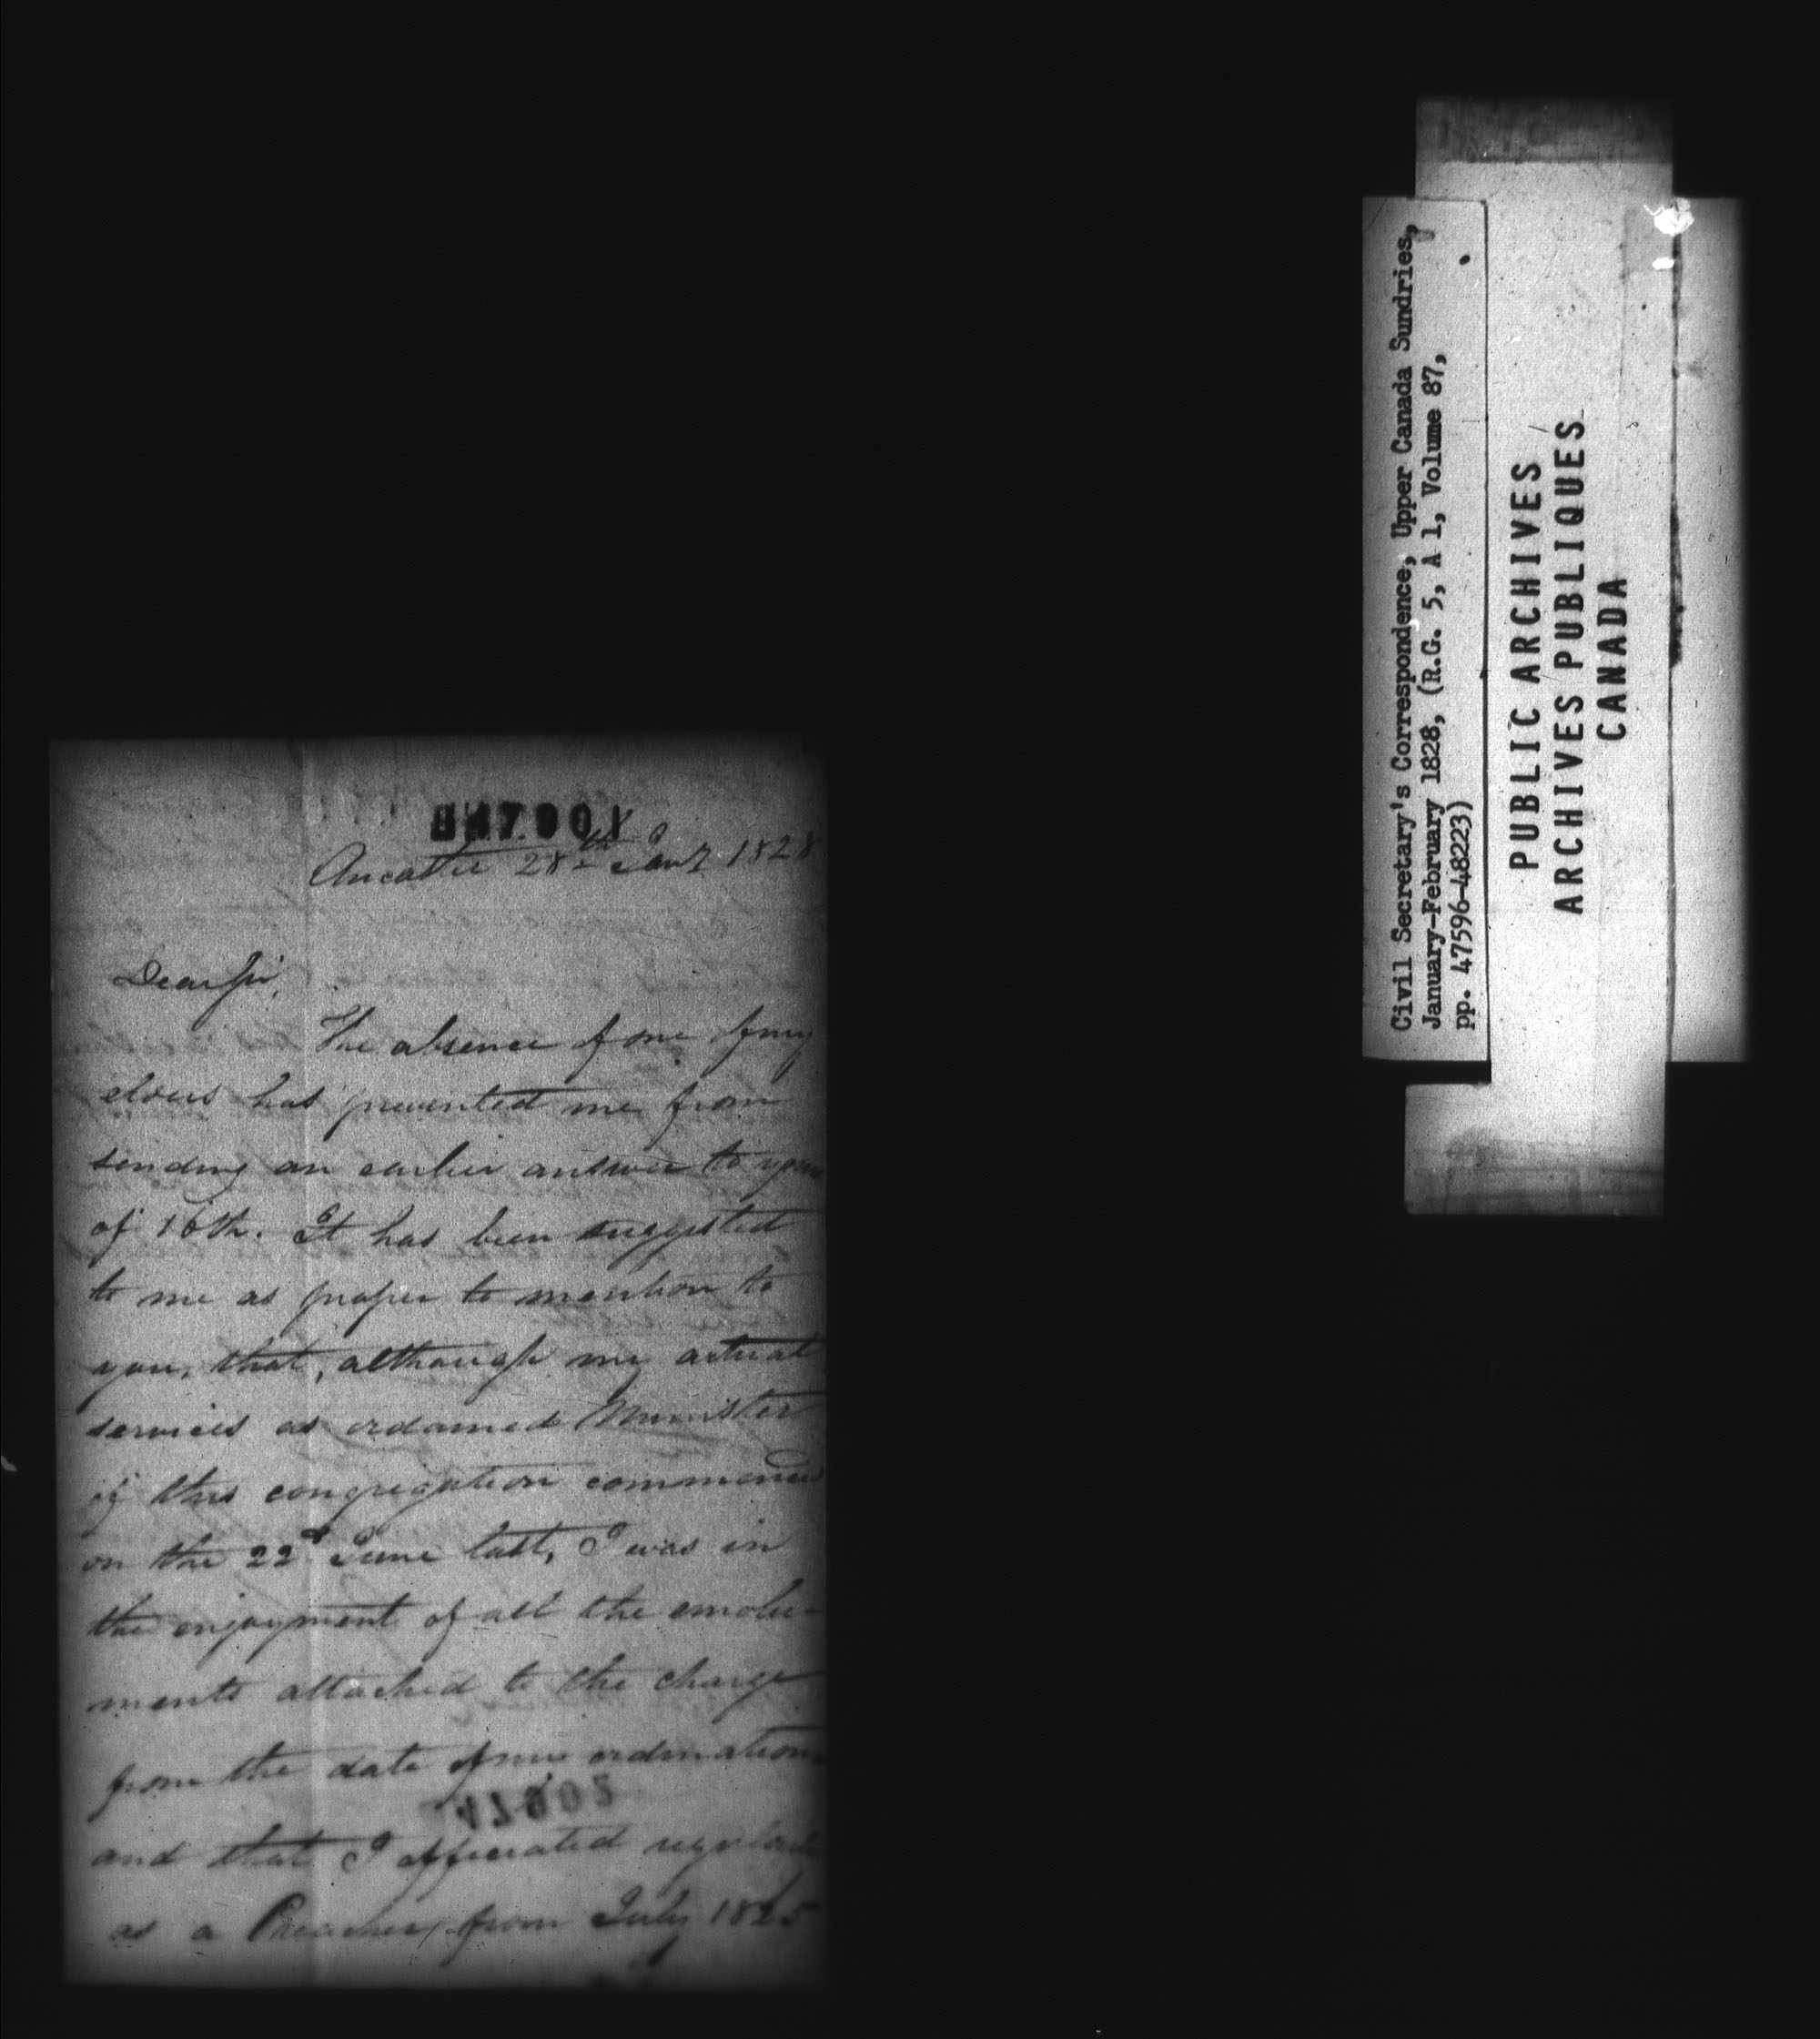 047901
Ancaster 28th Jany 1828
Dear Sir,
The absence of one of my
elders has prevented me from
sending an earlier answer to yours
of 16th. It has been suggested
to me as proper to mention to
you, that, although my actual
services as ordained Minister
of this congregation commenced
on the 22d June last, I was in
the enjoyment of all the emolu-
ments attached to the charge
from the date of my ordination
and that I officiated regularly
as a Preacher, from July 1825
47902
Civil Secretary's Correspondence, Upper Canada Sundries,
January-February 1828, (R.G. 5, A 1, Volume 87,
pp. 47596-48223)
PUBLIC ARCHIVES
ARCHIVES PUBLIQUES
CANADA